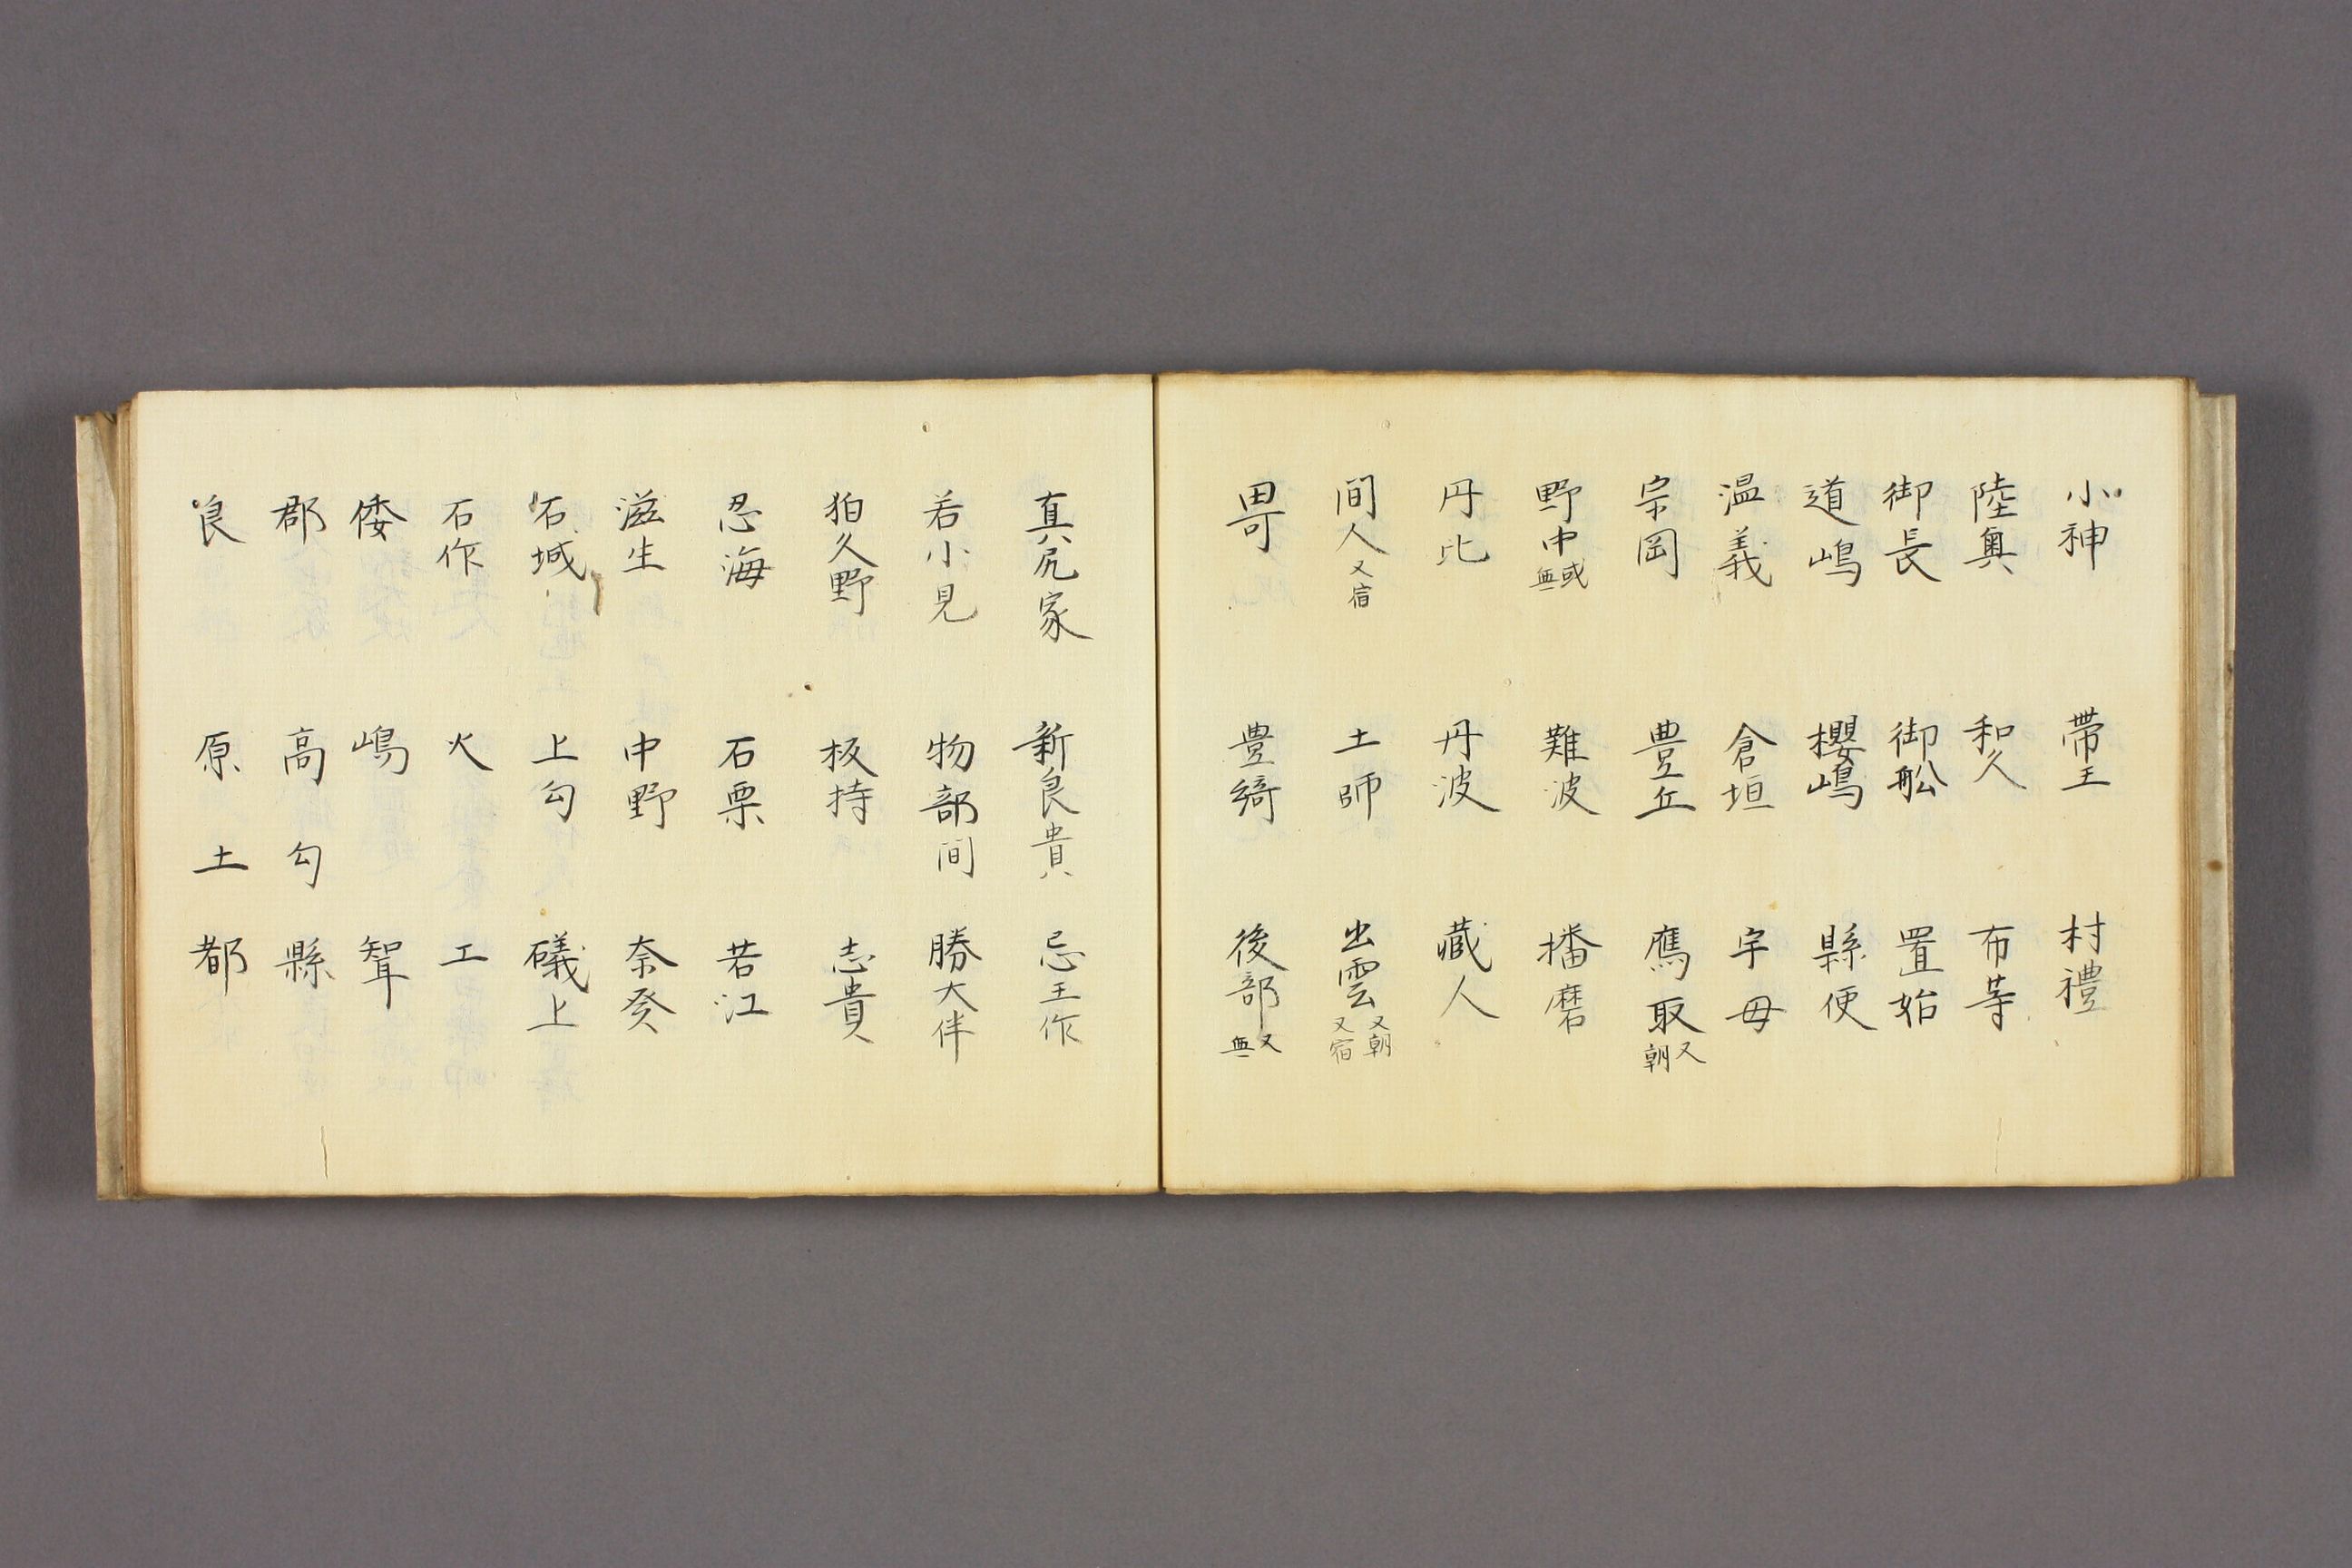 小神 帯王 村禮
陸奥 和久 布等
御長 御舩 置始
道嶋 櫻嶋 縣使
温義 倉垣 宇毋
宗岡 豊丘 鷹取又朝
野中或無 難波 播磨
丹比 丹波 藏人
間人又宿 土師 出雲又朝又宿
哥 豊綺 後部又無
真尻家 新良貴 忌玉作
若小見 物部間 勝大伴
狛久野 板持 志貴
忍海 石栗 若江
滋生 中野 奈癸
石城 上勾 礒上
石作 火 工
倭 嶋 聟
郡 高勾 縣
良 原 土 都